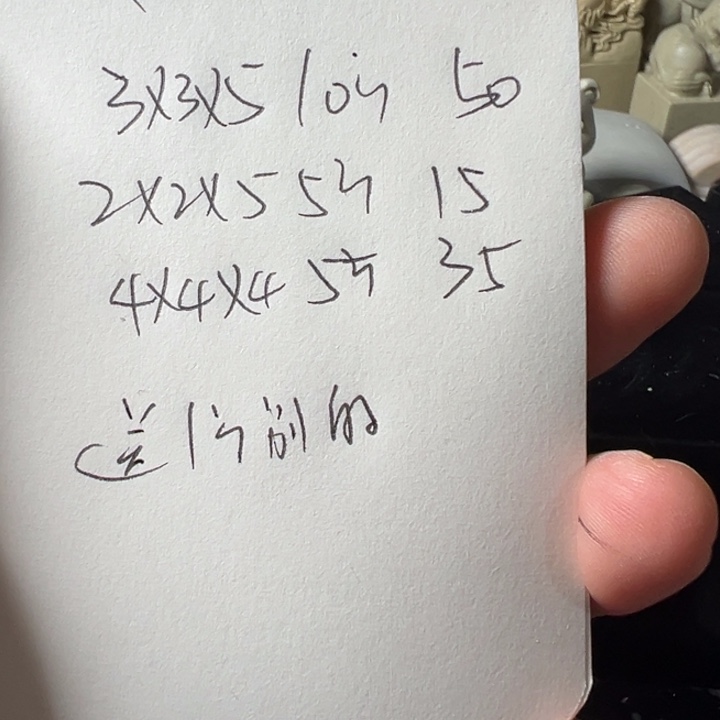 3X3X5 10方 50
2X2X5 5方 15
4X4X4 5方 35
送1方别的